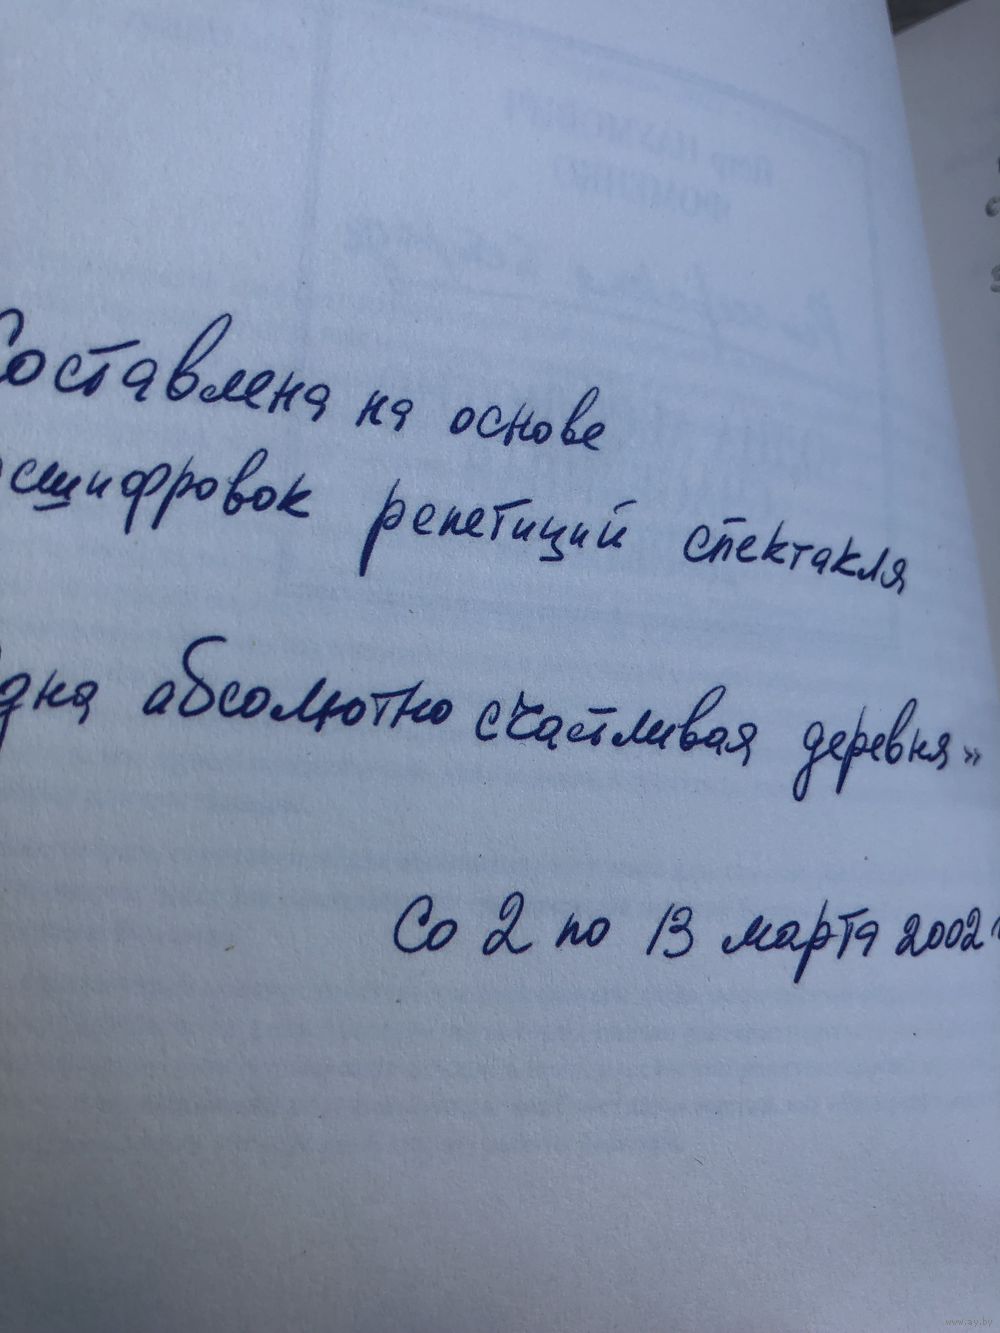 Составлена на основе
сшифровок репетиций спектакля
дна абсолютно счастливая деревня»
Со 2 по 13 марта 2002 г
www.ay.by